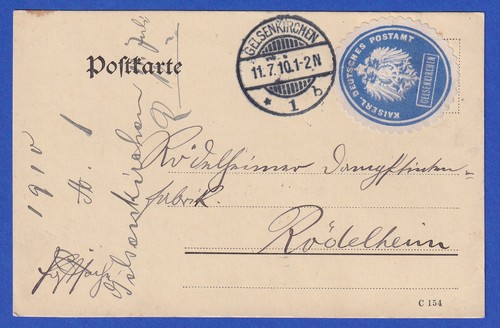 Postkarte
GELSENKIRCHEN
11.7.10.1-2N
* 1 b
KAISERL. DEUTSCHES POSTAMT
GELSENKIRCHEN
Rödelheimer
fabrik.
Rödelheim
1910
1
Juli
Gelsenkirchen
C 154